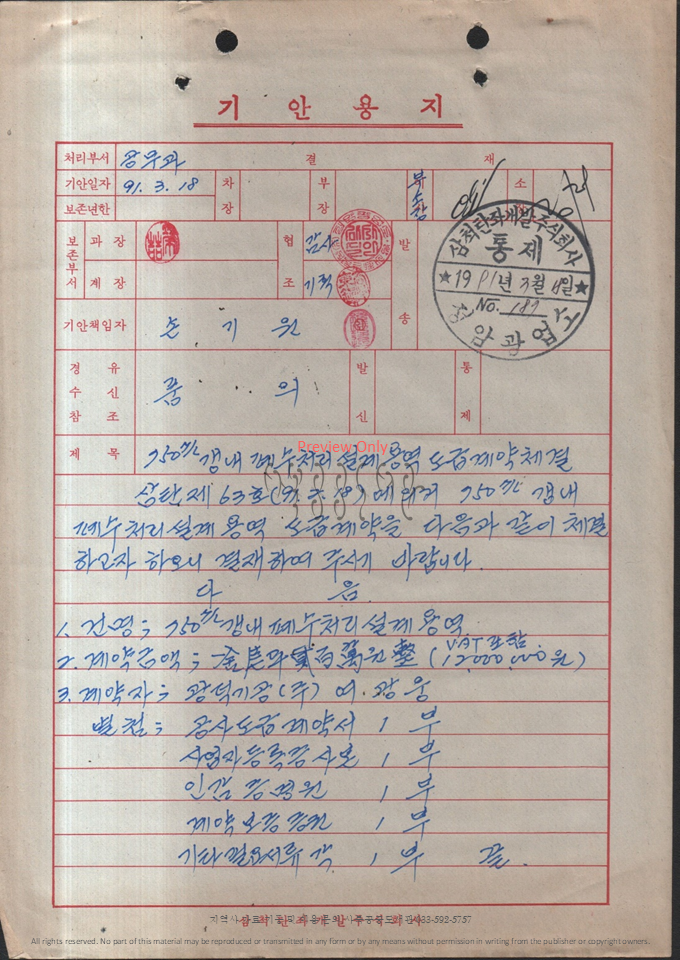 기 안 용 지
처리부서 공무과 결 재
기안일자 91. 3. 18 차장 부장 부소장 소
보존년한
보존부서 과장 협조 감사 발송
계장 기획
기안책임자 손 기 원
경유 수신 참조 품 의 발신 통제
삼척탄좌개발주식회사
통제
★ 1991년 3월 일 ★
No. 187
정암광업소
제목 750㎖ 갱내 폐수처리설계용역 도급계약체결
Preview Only
삼탄제 63호(91. 2. 18)에 의거 750㎖ 갱내
폐수처리설계용역 도급계약을 다음과 같이 체결
하고자 하오니 결재하여 주시기 바랍니다.
다 음.
1. 건명; 750㎖ 갱내폐수처리설계용역
2. 계약금액; 百萬원整 (12,000,000원) VAT포함
3. 계약자; 광덕기공(주) 여. 광웅
별첨; 공사도급계약서 1 부
사업자등록증 사본 1 부
인감증명원 1 부
계약보증증권 1 부
기타필요서류 각 1 부 끝.
삼척탄좌개발주식회사
033-592-5757
All rights reserved. No part of this material may be reproduced or transmitted in any form or by any means without permission in writing from the publisher or copyright owners.